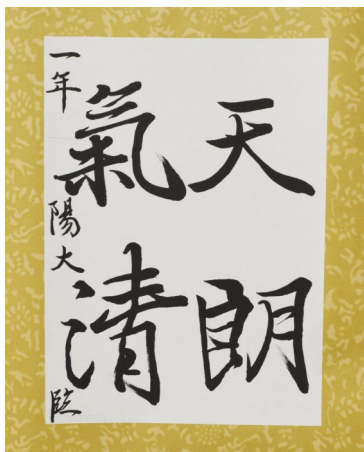 天朗
氣清
一年 陽大 臨